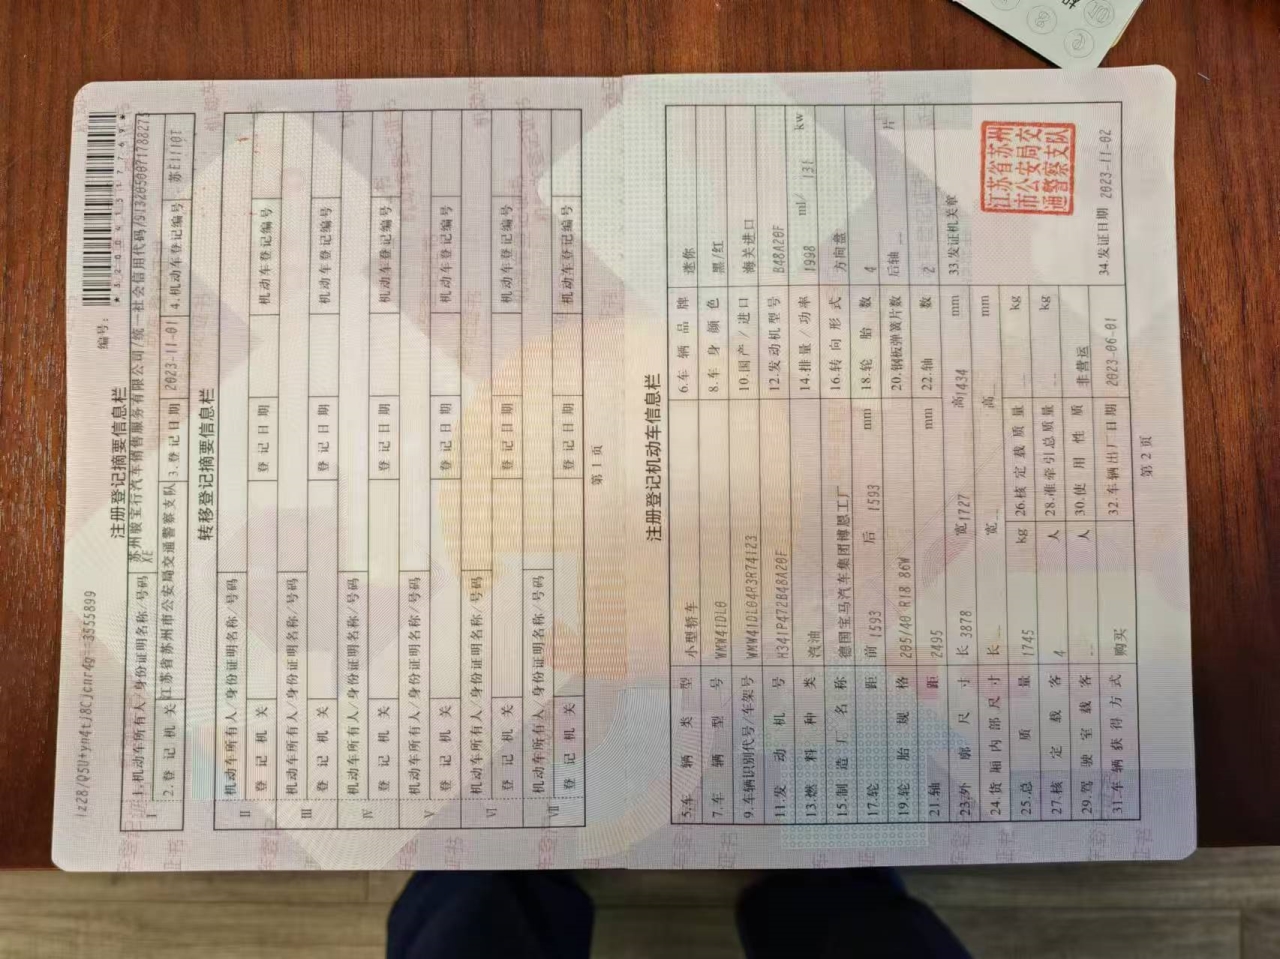 1z28/Q5U+yn4tJ8Cjcnr4g==3555899
编号:
注册登记摘要信息栏
I
1.机动车所有人/身份证明名称/号码 苏州骏宝行汽车销售服务有限公司/统一社会信用代码/91320500717882​7
XE
2.登记机关 江苏省苏州市公安局交通警察支队 3.登记日期 2023-11-01 4.机动车登记编号 苏E1110T
转移登记摘要信息栏
II 机动车所有人/身份证明名称/号码
登记机关 登记日期 机动车登记编号
III 机动车所有人/身份证明名称/号码
登记机关 登记日期 机动车登记编号
IV 机动车所有人/身份证明名称/号码
登记机关 登记日期 机动车登记编号
V 机动车所有人/身份证明名称/号码
登记机关 登记日期 机动车登记编号
VI 机动车所有人/身份证明名称/号码
登记机关 登记日期 机动车登记编号
VII 机动车所有人/身份证明名称/号码
登记机关 登记日期 机动车登记编号
第 1 页
注册登记机动车信息栏
5.车辆类型 小型轿车 6.车辆品牌 迷你
7.车辆型号 WMW41DL0 8.车身颜色 黑/红
9.车辆识别代号/车架号 WMW41DL04R3R74123 10.国产/进口 海关进口
11.发动机号 H341P472B48A20F 12.发动机型号 B48A20F
13.燃料种类 汽油 14.排量/功率 1998 ml/ 131 kw
15.制造厂名称 德国宝马汽车集团博恩工厂 16.转向形式 方向盘
17.轮距 前 1593 后 1593 mm 18.轮胎数 4
19.轮胎规格 205/40 R18 86W 20.钢板弹簧片数 后轴 -- 片
21.轴距 2495 mm 22.轴数 2
23.外廓尺寸 长 3878 宽 1727 高 1434 mm 33.发证机关章
24.货厢内部尺寸 长 -- 宽 -- 高 -- mm
25.总质量 1745 kg 26.核定载质量 -- kg
27.核定载客 4 人 28.准牵引总质量 -- kg
29.驾驶室载客 -- 人 30.使用性质 非营运
31.车辆获得方式 购买 32.车辆出厂日期 2023-06-01 34.发证日期 2023-11-02
江苏省苏州
市公安局交
通警察支队
第 2 页